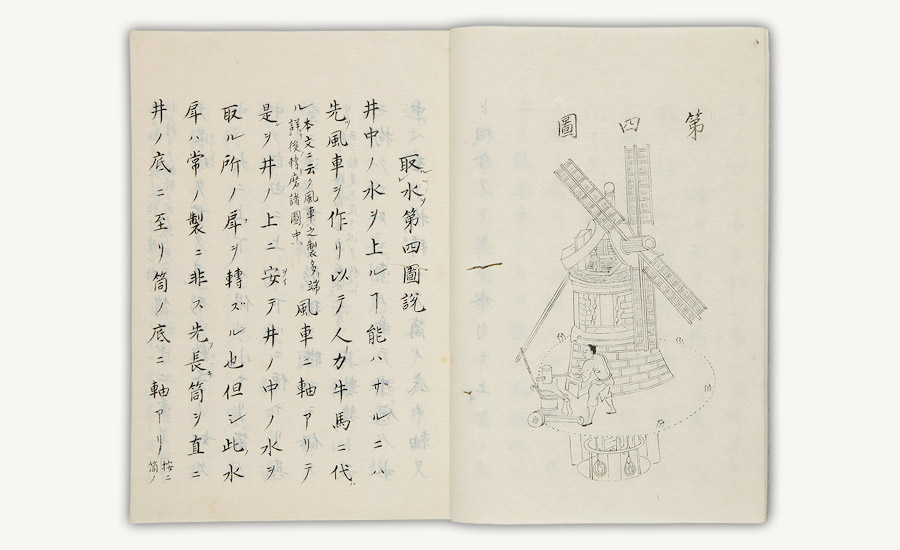 第四圖
取水第四圖説
井中ノ水ヲ上ルヿ能ハザルニハ
先風車ヲ作リ以テ人力牛馬ニ代
ル本文ニ云ク風車之製多端詳後轉磨諸圖中風車ニ軸アリテ
是ヲ井ノ上ニ安テ井ノ中ノ水ヲ
取ル所ノ戽ヲ轉ズル也但シ此水
戽ハ常ノ製ニ非ス先長筒ヲ直ニ
井ノ底ニ至リ筒ノ底ニ軸アリ按ニ筒ノ